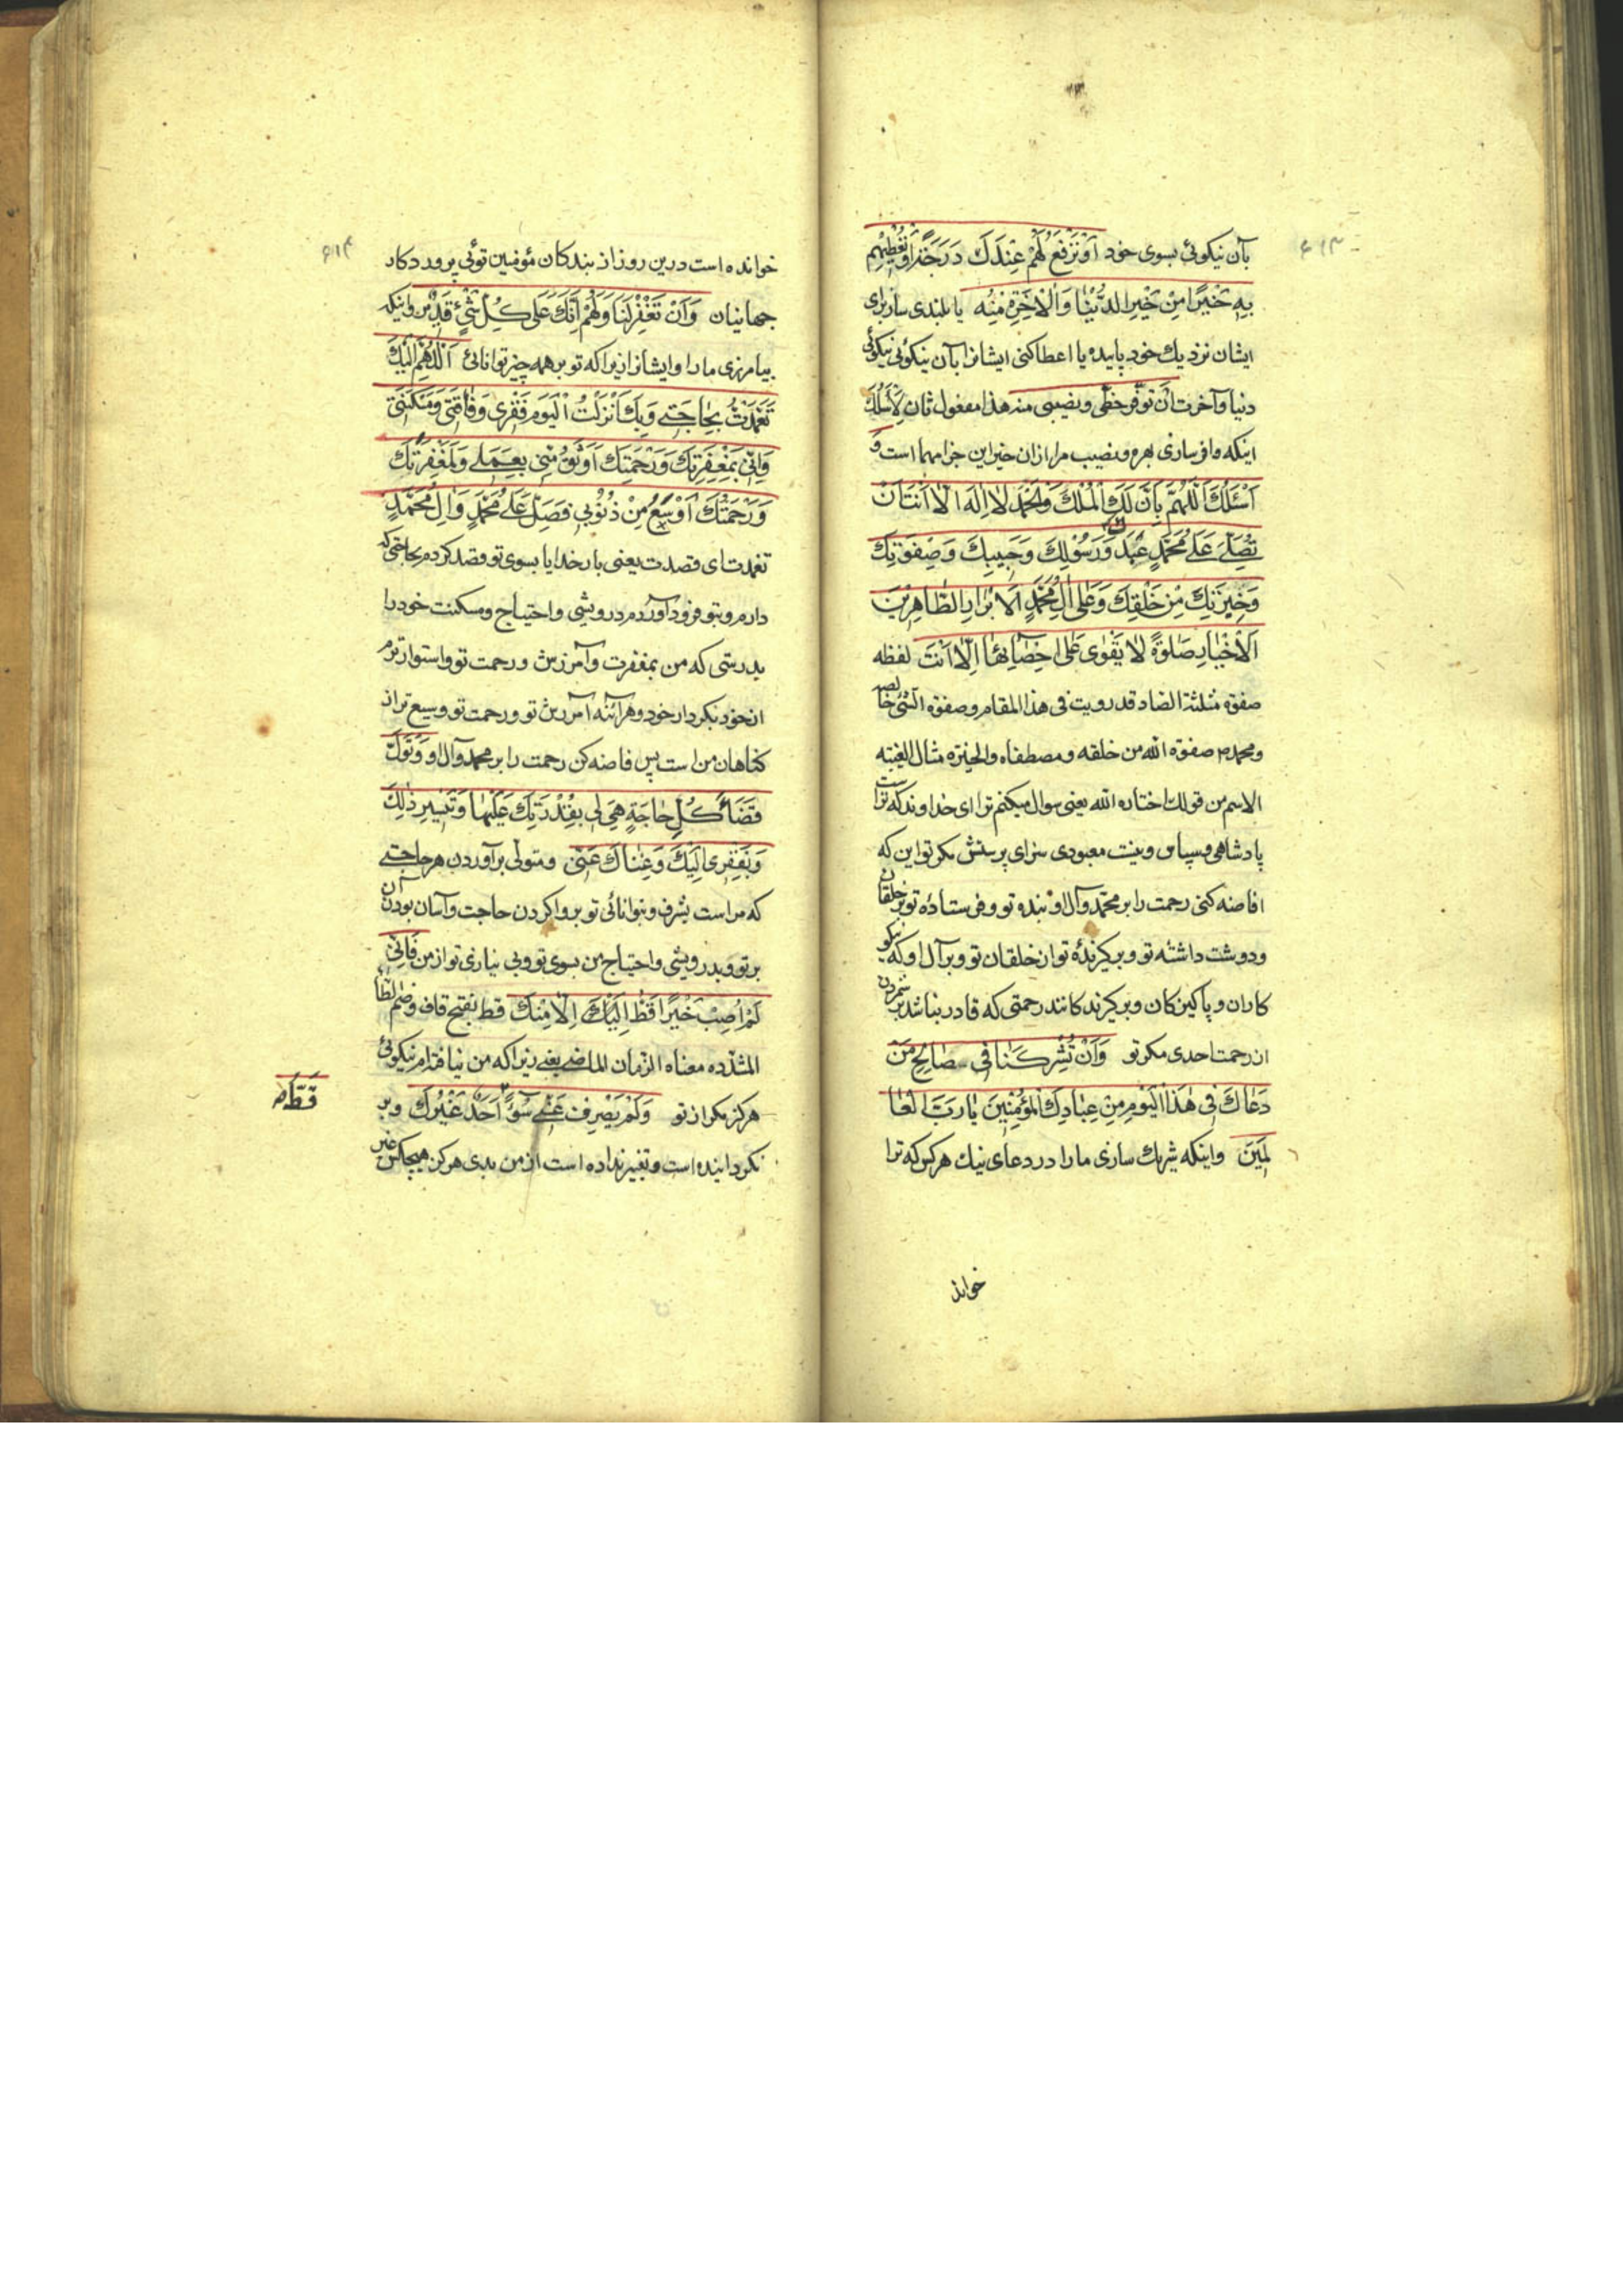 ۶۱۳
بآن نیکوئی بسوی خود اَوْتَرْفَعَ لَهُمْ عِنْدَكَ دَرَجَةً اَوْتُعْطِيَهُمْ
بِهِ خَيْرًا مِنْ خَيْرِ الدُّنْيَا وَالْاٰخِرَةِ مِنْهُ یا بلندی ساز برای
ایشان نزدیك خود پایه یا اعطا کنی ایشانرا بآن نیکوئی نیکوئی
دنیا و آخرت اَنْ تُوَفِّرَ حَظّی و نصیبی منه هذا مفعول ثان لِاَسْئَلُكَ
اینکه وافر سازی بهره و نصیب مرا از آن خیر این جزا مهما است وَ
اَسْئَلُكَ اَللّٰهُمَّ بِاَنَّ لَكَ الْمُلْكَ وَالْحَمْدَ لَا اِلٰهَ اِلَّا اَنْتَ اَنْ
تُصَلِّيَ عَلٰى مُحَمَّدٍ عَبْدِكَ وَرَسُوْلِكَ وَحَبِيبِكَ وَصِفْوَتِكَ
وَخِيَرَتِكَ مِنْ خَلْقِكَ وَعَلٰى اٰلِ مُحَمَّدٍ اَلْاَبْرَارِ الطَّاهِرِيْنَ
اَلْاَخْيَارِ صَلٰوةً لَا يَقْوٰى عَلٰى اِحْصَائِهَا اِلَّا اَنْتَ لفظه
صفوة مثلثة الصاد قد رویت فی هذا المقام و صفوة الشئ خالصه
و محمد ص صفوة الله من خلقه و مصطفاه والخیرة مثال العنبة
الاسم من قولك اختاره الله یعنی سوال میکنم ترا ای خداوند که تراست
پادشاهی و سپاس و نیست معبودی سزای پرستش مکر تو این که
افاضه کنی رحمت را بر محمّد و آل او بنده تو و فرستادهٔ تو بر خلقان
و دوست داشته تو و برگزیدهٔ تو از خلقان تو و بر آل او که نیکو
کاران و پاکیزکان و برگزیدکانند رحمتی که قادر نباشد بر شمردن
ان رحمت احدی مکر تو وَاَنْ تُشْرِكَنَا فِي صَالِحِ مَنْ
دَعَاكَ فِي هٰذَا الْيَوْمِ مِنْ عِبَادِكَ الْمُؤْمِنِينَ يَا رَبَّ الْعَا
لَمِيْنَ و اینکه شریك سازی ما را در دعای نیك هر کس که ترا
خوانده
۶۱۴
خوانده است درین روز از بندکان مؤمنین توئی پروردکار
جهانیان وَاَنْ تَغْفِرَ لَنَا وَلَهُمْ اِنَّكَ عَلٰى كُلِّ شَيْءٍ قَدِيْرٌ و اینکه
بیامرزی ما را و ایشانرا زیراکه تو بر همه چیز توانائی اَللّٰهُمَّ اِلَيْكَ
تَعَمَّدْتُ بِحَاجَتِي وَبِكَ اَنْزَلْتُ الْيَوْمَ فَقْرِي وَفَاقَتِي وَمَسْكَنَتِي
وَاِنِّي بِمَغْفِرَتِكَ وَرَحْمَتِكَ اَوْثَقُ مِنِّي بِعَمَلِي وَلَمَغْفِرَتُكَ
وَرَحْمَتُكَ اَوْسَعُ مِنْ ذُنُوْبِي فَصَلِّ عَلٰى مُحَمَّدٍ وَاٰلِ مُحَمَّدٍ
تعمدت ای قصدت یعنی بار خدایا بسوی تو قصد کردم بحاجتی که
دارم و بتو فرود آوردم درویشی و احتیاج و مسکنت خود را
بدرستی که من بمغفرت و آمرزش و رحمت تو واستوارترم
از خود بکردار خود و هرآئنه آمرزش تو و رحمت تو وسیع تر از
کناهان من است پس فاضه کن رحمت را بر محمد و آل او وَتَوَلَّ
قَضَاءَ كُلِّ حَاجَةٍ هِيَ لِي بِقُدْرَتِكَ عَلَيْهَا وَتَيْسِيرِ ذٰلِكَ
وَبِفَقْرِي اِلَيْكَ وَغِنَاكَ عَنِّي و متولی برآوردن هر حاجتی
که مراست بشرف و توانائی تو بر واکردن حاجت و آسان بودن آن
بر تو و بدرویشی و احتیاج من بسوی تو و بی نیازی تو از من فَاِنِّي
لَمْ اُصِبْ خَيْرًا قَطُّ اِلَيْكَ اِلَّا مِنْكَ قط بفتح قاف و ضم الطاء
المشدّده معناه الزمان الماضی یعنی زیراکه من نیافته ام نیکوئی
هرکز مکر از تو وَلَمْ يَصْرِفْ عَنِّي سُوْءً اَحَدٌ غَيْرُكَ و بر
نکردانیده است و تغییر نداده است از من بدی هرکز هیچکس غیر
قَطُّ